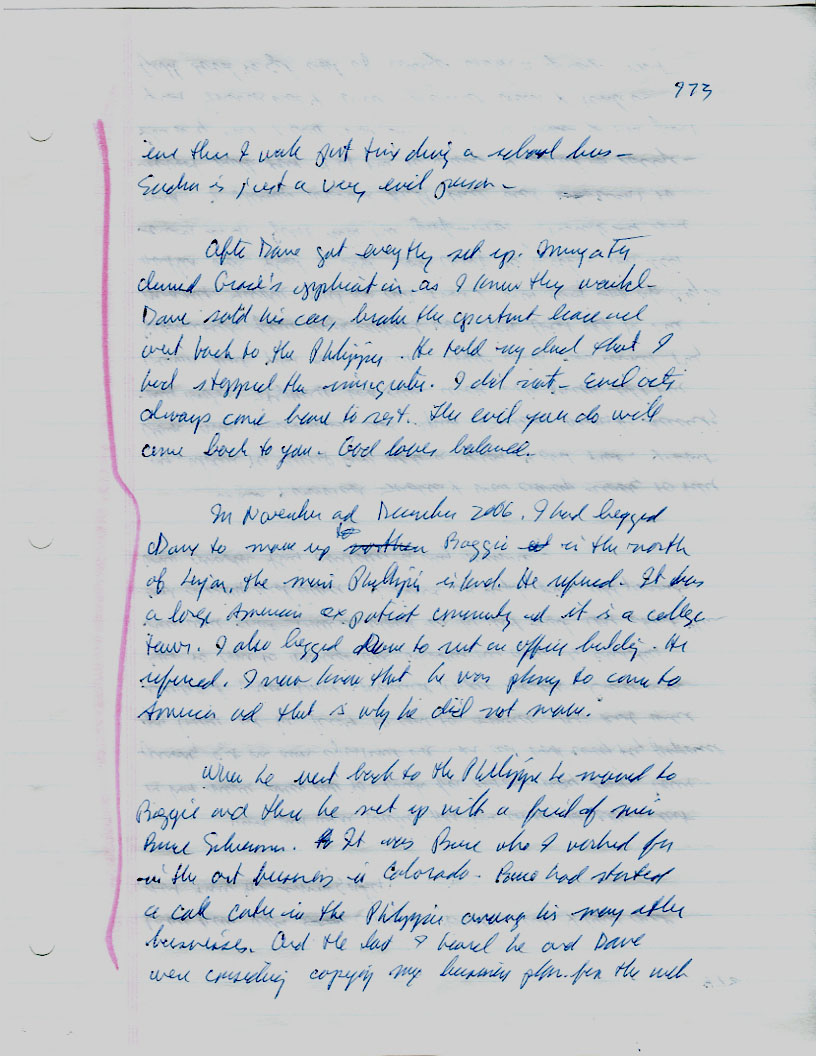 973
I work part time driving a school bus –
is just a very evil person –
After Dave got everything set up. Immigration
denied Grace's application as I knew they would –
Dave sold his car, broke the apartment lease and
went back to the Philippines. He told my dad that I
had stopped the immigration. I did not – Evil acts
always come home to rest. The evil you do will
come back to you – God loves balance –
In November and December 2006. I had begged
Dave to move up to Baggie is the north
of the main Philippine island. He refused. It has
a large American expatriot community and it is a college
town. I also begged Dave to rent an office building. He
refused. I now know that he was planning to come to
America and that is why he did not move.
When he went back to the Philippines he moved to
Baggie and then he set up with a friend of mine
Bruce Silverman. It was Bruce who I worked for
in the art business in Colorado – Bruce had started
a call center in the Philippines among his many other
businesses. And the last I heard he and Dave
were considering copying my business plan for the web